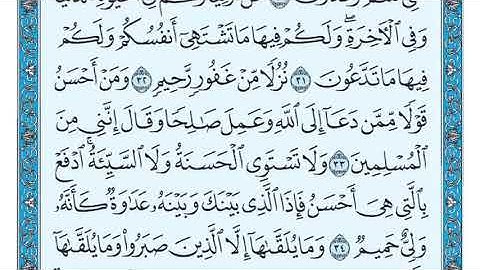 وَفِي ٱلْأَخِرَةِ ۖ وَلَكُمْ فِيهَا مَا تَشْتَهِىٓ أَنفُسُكُمْ وَلَكُمْ
فِيهَا مَا تَدَّعُونَ ٣١ نُزُلًا مِّنْ غَفُورٍ رَّحِيمٍ ٣٢ وَمَنْ أَحْسَنُ
قَوْلًا مِّمَّن دَعَآ إِلَى ٱللَّهِ وَعَمِلَ صَـٰلِحًا وَقَالَ إِنَّنِى مِنَ
ٱلْمُسْلِمِينَ ٣٣ وَلَا تَسْتَوِى ٱلْحَسَنَةُ وَلَا ٱلسَّيِّئَةُ ۚ ٱدْفَعْ
بِٱلَّتِى هِىَ أَحْسَنُ فَإِذَا ٱلَّذِى بَيْنَكَ وَبَيْنَهُۥ عَدَٰوَةٌ كَأَنَّهُۥ
وَلِىٌّ حَمِيمٌ ٣٤ وَمَا يُلَقَّىٰهَآ إِلَّا ٱلَّذِينَ صَبَرُوا۟ وَمَا يُلَقَّىٰهَآ